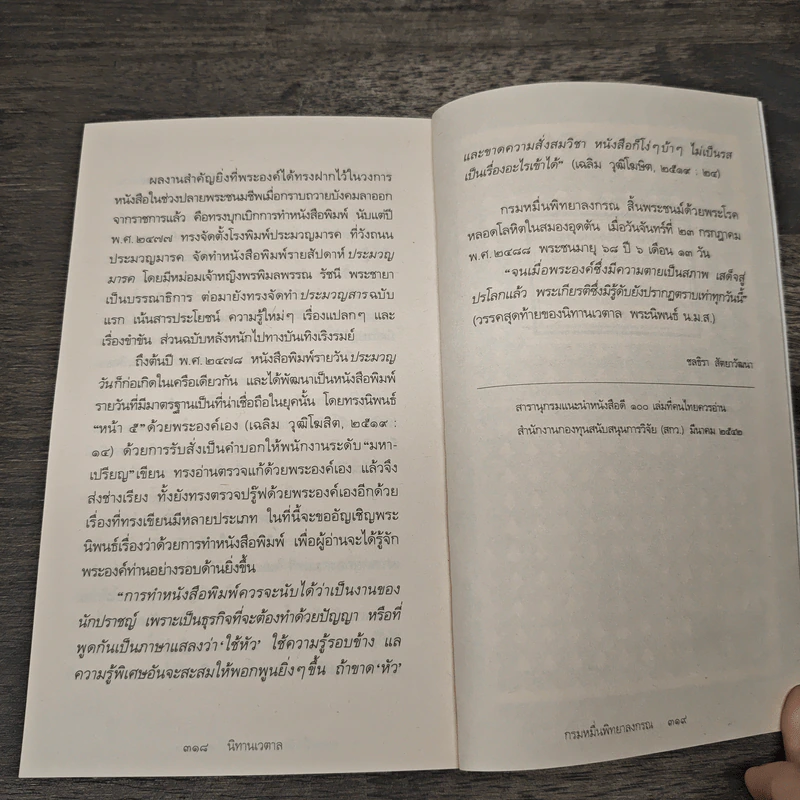 ผลงานสำคัญยิ่งที่พระองค์ได้ทรงฝากไว้ในวงการ
หนังสือในช่วงปลายพระชนมชีพเมื่อกราบถวายบังคมลาออก
จากราชการแล้ว คือทรงบุกเบิกการทำหนังสือพิมพ์ นับแต่ปี
พ.ศ. ๒๔๗๗ ทรงจัดตั้งโรงพิมพ์ประมวญมารค ที่วังถนน
ประมวญมารค จัดทำหนังสือพิมพ์รายสัปดาห์ ประมวญ
มารค โดยมีหม่อมเจ้าหญิงพรพิมลพรรณ รัชนี พระชายา
เป็นบรรณาธิการ ต่อมายังทรงจัดทำ ประมวญสาร ฉบับ
แรก เน้นสารประโยชน์ ความรู้ใหม่ๆ เรื่องแปลกๆ และ
เรื่องขำขัน ส่วนฉบับหลังหนักไปทางบันเทิงเริงรมย์
ถึงต้นปี พ.ศ. ๒๔๗๘ หนังสือพิมพ์รายวัน ประมวญ
วัน ก็ก่อเกิดในเครือเดียวกัน และได้พัฒนาเป็นหนังสือพิมพ์
รายวันที่มีมาตรฐานเป็นที่น่าเชื่อถือในยุคนั้น โดยทรงนิพนธ์
“หน้า ๕” ด้วยพระองค์เอง (เฉลิม วุฒิโฆสิต, ๒๕๑๙ :
๑๔) ด้วยการรับสั่งเป็นคำบอกให้พนักงานระดับ “มหา-
เปรียญ” เขียน ทรงอ่านตรวจแก้ด้วยพระองค์เอง แล้วจึง
ส่งช่างเรียง ทั้งยังทรงตรวจปรู๊ฟด้วยพระองค์เองอีกด้วย
เรื่องที่ทรงเขียนมีหลายประเภท ในที่นี้จะขออัญเชิญพระ
นิพนธ์เรื่องว่าด้วยการทำหนังสือพิมพ์ เพื่อผู้อ่านจะได้รู้จัก
พระองค์ท่านอย่างรอบด้านยิ่งขึ้น
“การทำหนังสือพิมพ์ควรจะนับได้ว่าเป็นงานของ
นักปราชญ์ เพราะเป็นธุรกิจที่จะต้องทำด้วยปัญญา หรือที่
พูดกันเป็นภาษาแสลงว่า ‘ใช้หัว’ ใช้ความรู้รอบข้าง แล
ความรู้พิเศษอันจะสะสมให้พอกพูนยิ่งๆ ขึ้น ถ้าขาด ‘หัว’
๓๑๘ นิทานเวตาล
และขาดความสั่งสมวิชา หนังสือก็โง่ๆ บ้าๆ ไม่เป็นรส
เป็นเรื่องอะไรเข้าได้” (เฉลิม วุฒิโฆษิต, ๒๕๑๙ : ๒๔)
กรมหมื่นพิทยาลงกรณ สิ้นพระชนม์ด้วยพระโรค
หลอดโลหิตในสมองอุดตัน เมื่อวันจันทร์ที่ ๒๓ กรกฎาคม
พ.ศ. ๒๔๘๘ พระชนมายุ ๖๘ ปี ๖ เดือน ๑๓ วัน
“จนเมื่อพระองค์ซึ่งมีความตายเป็นสภาพ เสด็จสู่
ปรโลกแล้ว พระเกียรติซึ่งมีรู้ดับยังปรากฏตราบเท่าทุกวันนี้”
(วรรคสุดท้ายของนิทานเวตาล พระนิพนธ์ น.ม.ส.)
ชลธิรา สัตยาวัฒนา
สารานุกรมแนะนำหนังสือดี ๑๐๐ เล่มที่คนไทยควรอ่าน
สำนักงานกองทุนสนับสนุนการวิจัย (สกว.) มีนาคม ๒๕๔๒
กรมหมื่นพิทยาลงกรณ ๓๑๙